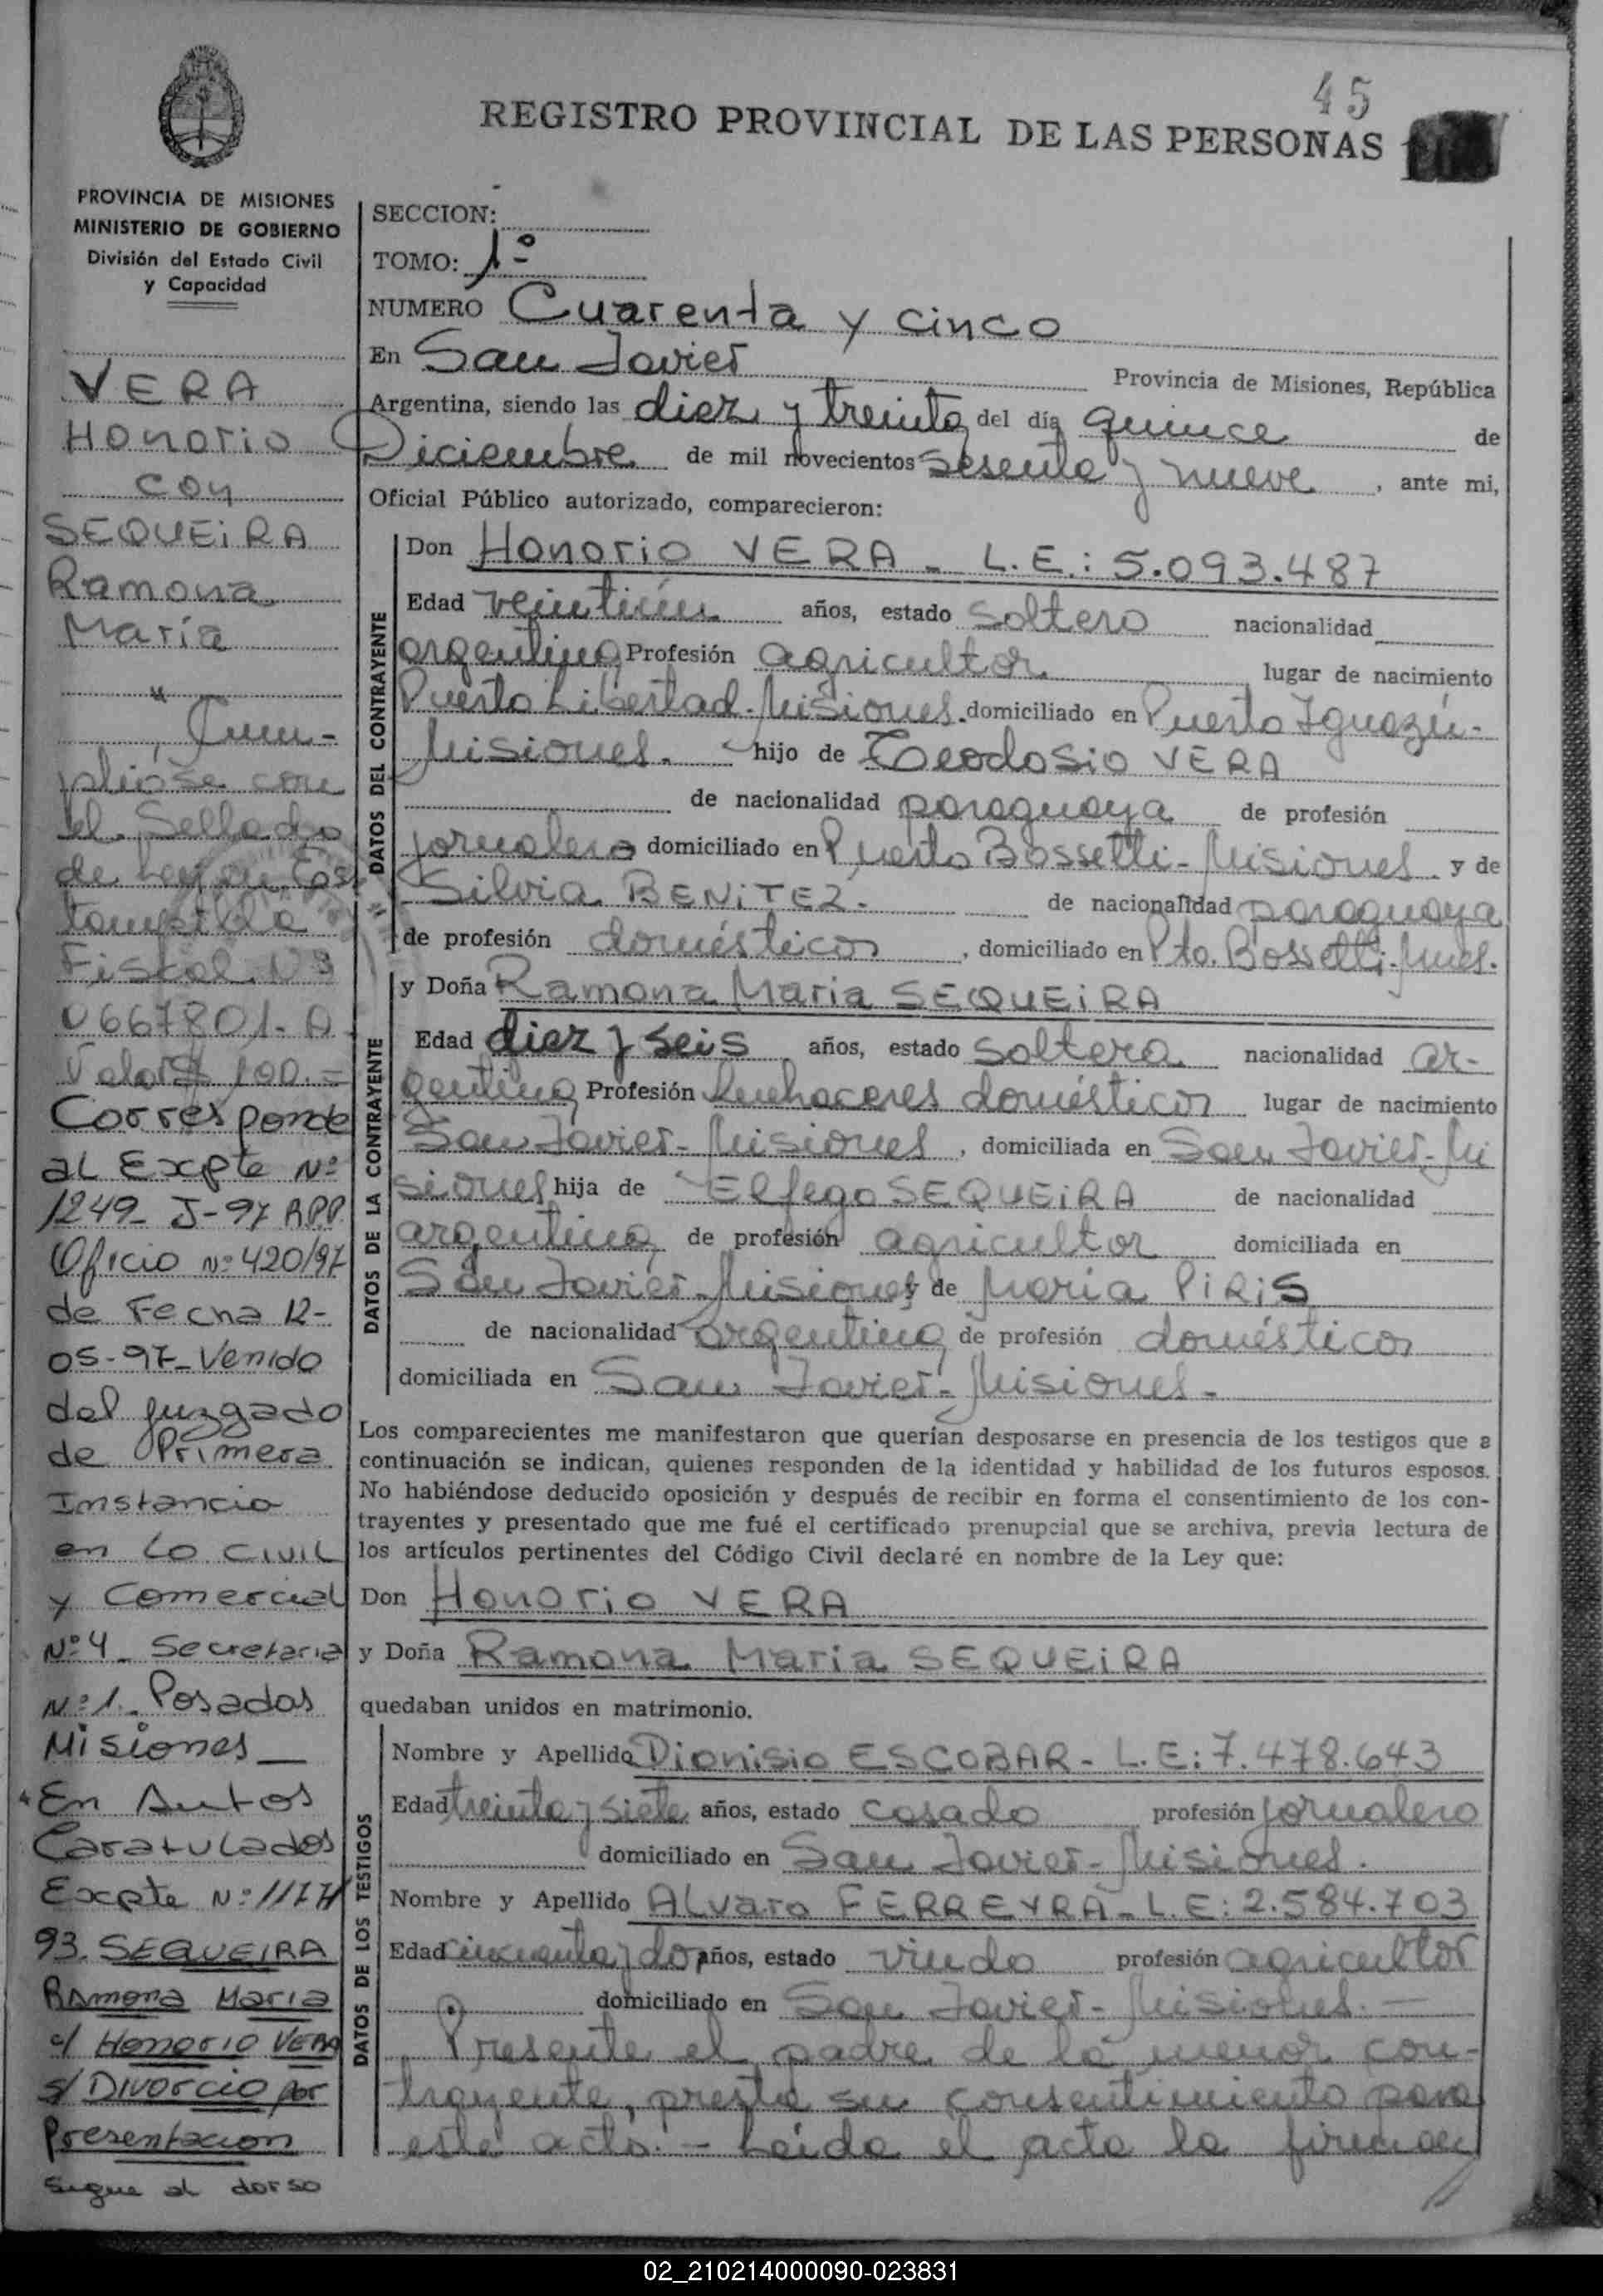 45
REGISTRO PROVINCIAL DE LAS PERSONAS
PROVINCIA DE MISIONES
MINISTERIO DE GOBIERNO
División del Estado Civil
y Capacidad
VERA
Honorio
con
SEQUEIRA
Ramona
María
Cum-
plióse con
el Sellado
de Ley en Es-
tampilla
Fiscal Nº
0667801-A
Valor $ 100.=
Corresponde
al Expte Nº
1249- J-97 RPP.
Oficio Nº 420/97
de Fecha 12-
05-97- Venido
del Juzgado
de Primera
Instancia
en Lo Civil
y Comercial
Nº 4_ Secretaria
Nº 1_ Posadas
Misiones_
En Autos
Caratulados
Expte Nº 1177/
93. SEQUEIRA
Ramona Maria
c/ Honorio VERA
s/ Divorcio por
Presentacion
Sigue al dorso
SECCION:
TOMO: 1º
NUMERO Cuarenta y cinco
En San Javier Provincia de Misiones, República
Argentina, siendo las diez y treinta del día quince de
Diciembre de mil novecientos sesenta y nueve, ante mi,
Oficial Público autorizado, comparecieron:
DATOS DEL CONTRAYENTE
Don Honorio VERA - L.E.: 5.093.487
Edad veintiún años, estado soltero nacionalidad
argentina Profesión agricultor lugar de nacimiento
Puerto Libertad-Misiones. domiciliado en Puerto Iguazú-
Misiones. hijo de Teodosio VERA
de nacionalidad paraguaya de profesión
jornalero domiciliado en Puerto Bossetti-Misiones y de
Silvia BENITEZ.- de nacionalidad paraguaya
de profesión domésticos, domiciliado en Pto. Bossetti-Mnes.
DATOS DE LA CONTRAYENTE
y Doña Ramona Maria SEQUEIRA
Edad diez y seis años, estado soltera nacionalidad ar-
gentina Profesión Quehaceres domésticos lugar de nacimiento
San Javier-Misiones, domiciliada en San Javier-Mi
siones hija de Elfego SEQUEIRA de nacionalidad
argentina de profesión agricultor domiciliada en
San Javier-Misiones y de María PIRIS
de nacionalidad argentina de profesión domésticos
domiciliada en San Javier-Misiones.-
Los comparecientes me manifestaron que querían desposarse en presencia de los testigos que a
continuación se indican, quienes responden de la identidad y habilidad de los futuros esposos.
No habiéndose deducido oposición y después de recibir en forma el consentimiento de los con-
trayentes y presentado que me fué el certificado prenupcial que se archiva, previa lectura de
los artículos pertinentes del Código Civil declaré en nombre de la Ley que:
Don Honorio VERA
y Doña Ramona Maria SEQUEIRA
quedaban unidos en matrimonio.
DATOS DE LOS TESTIGOS
Nombre y Apellido Dionisio ESCOBAR- L.E: 7.478.643
Edad treinta y siete años, estado casado profesión jornalero
domiciliado en San Javier-Misiones.
Nombre y Apellido Alvaro FERREYRA- L.E: 2.584.703
Edad cincuenta y dos años, estado viudo profesión agricultor
domiciliado en San Javier-Misiones.-
Presente el padre de la menor con-
trayente, presta su consentimiento para
este acto.- Leída el acta la firman
02_210214000090-023831